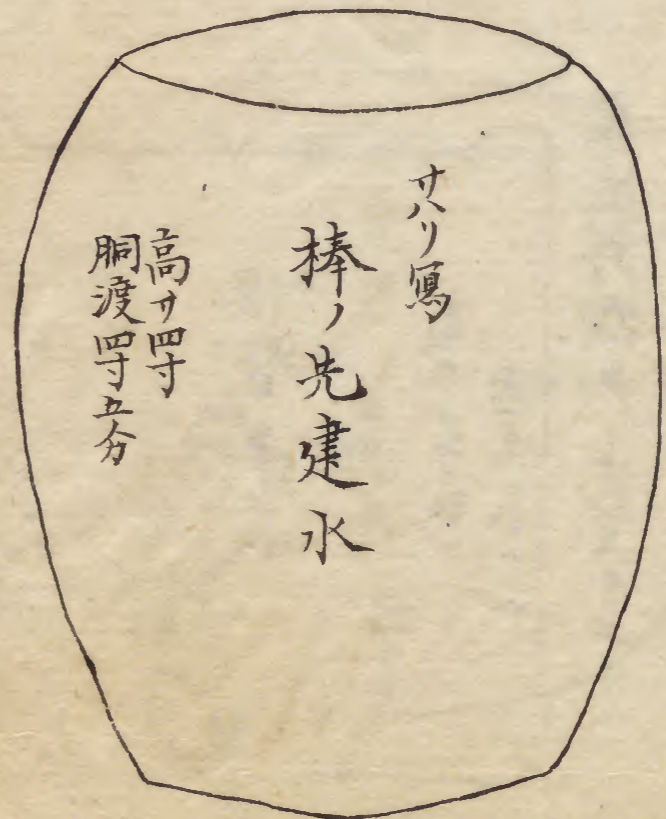 サハリ写
棒ノ先建水
高サ四寸
胴渡四寸五分